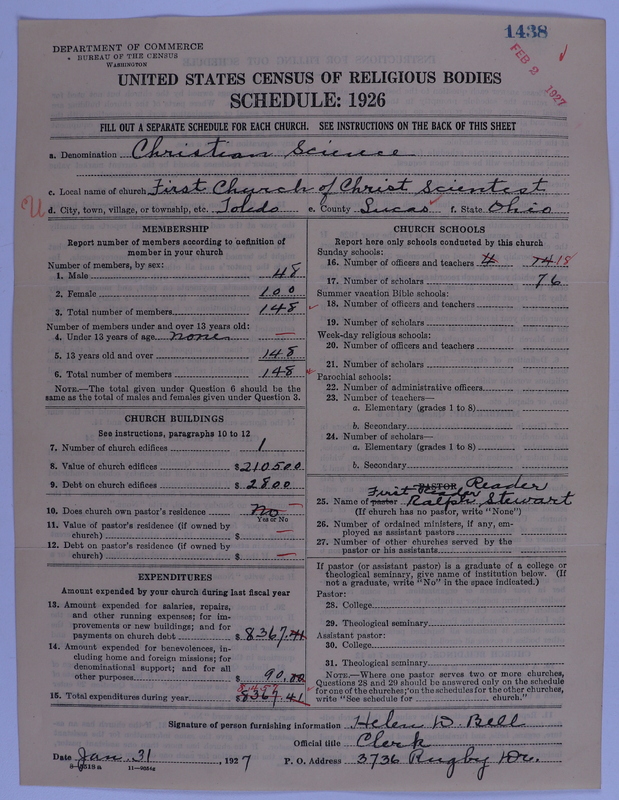 1438
FEB 2 1927
DEPARTMENT OF COMMERCE
BUREAU OF THE CENSUS
WASHINGTON
UNITED STATES CENSUS OF RELIGIOUS BODIES
SCHEDULE: 1926
FILL OUT A SEPARATE SCHEDULE FOR EACH CHURCH. SEE INSTRUCTIONS ON THE BACK OF THIS SHEET
a. Denomination Christian Science
c. Local name of church First Church of Christ Scientist
U d. City, town, village, or township, etc. Toledo e. County Lucas f. State Ohio
MEMBERSHIP
Report number of members according to definition of
member in your church
Number of members, by sex:
1. Male 48
2. Female 100
3. Total number of members 148
Number of members under and over 13 years old:
4. Under 13 years of age none —
5. 13 years old and over 148
6. Total number of members 148
NOTE.—The total given under Question 6 should be
the same as the total of males and females given under Question 3.
CHURCH BUILDINGS
See instructions, paragraphs 10 to 12
7. Number of church edifices 1
8. Value of church edifices $210500
9. Debt on church edifices $2800
10. Does church own pastor's residence No —
Yes or No
11. Value of pastor's residence (if owned by
church) $ —
12. Debt on pastor's residence (if owned by
church) $ —
EXPENDITURES
Amount expended by your church during last fiscal year
13. Amount expended for salaries, repairs,
and other running expenses; for im-
provements or new buildings; and for
payments on church debt $8367.41
14. Amount expended for benevolences, in-
cluding home and foreign missions; for
denominational support; and for all
other purposes $90.00
15. Total expenditures during year $8367.41
CHURCH SCHOOLS
Report here only schools conducted by this church
Sunday schools:
16. Number of officers and teachers 4 14 18
17. Number of scholars 76
Summer vacation Bible schools:
18. Number of officers and teachers
19. Number of scholars
Week-day religious schools:
20. Number of officers and teachers
21. Number of scholars
Parochial schools:
22. Number of administrative officers
23. Number of teachers—
a. Elementary (grades 1 to 8)
b. Secondary
24. Number of scholars—
a. Elementary (grades 1 to 8)
b. Secondary
PASTOR Reader
First Reader
25. Name of pastor Ralph Stewart
(If church has no pastor, write "None")
26. Number of ordained ministers, if any, em-
ployed as assistant pastors
27. Number of other churches served by the
pastor or his assistants
If pastor (or assistant pastor) is a graduate of a college or
theological seminary, give name of institution below. (If
not a graduate, write "No" in the space indicated.)
Pastor:
28. College
29. Theological seminary
Assistant pastor:
30. College
31. Theological seminary
NOTE.—Where one pastor serves two or more churches,
Questions 28 and 29 should be answered only on the schedule
for one of the churches; on the schedules for the other churches,
write "See schedule for church."
Signature of person furnishing information Helen D. Bell
Official title Clerk
Date Jan. 31, 1927 P. O. Address 3736 Rugby Dr.